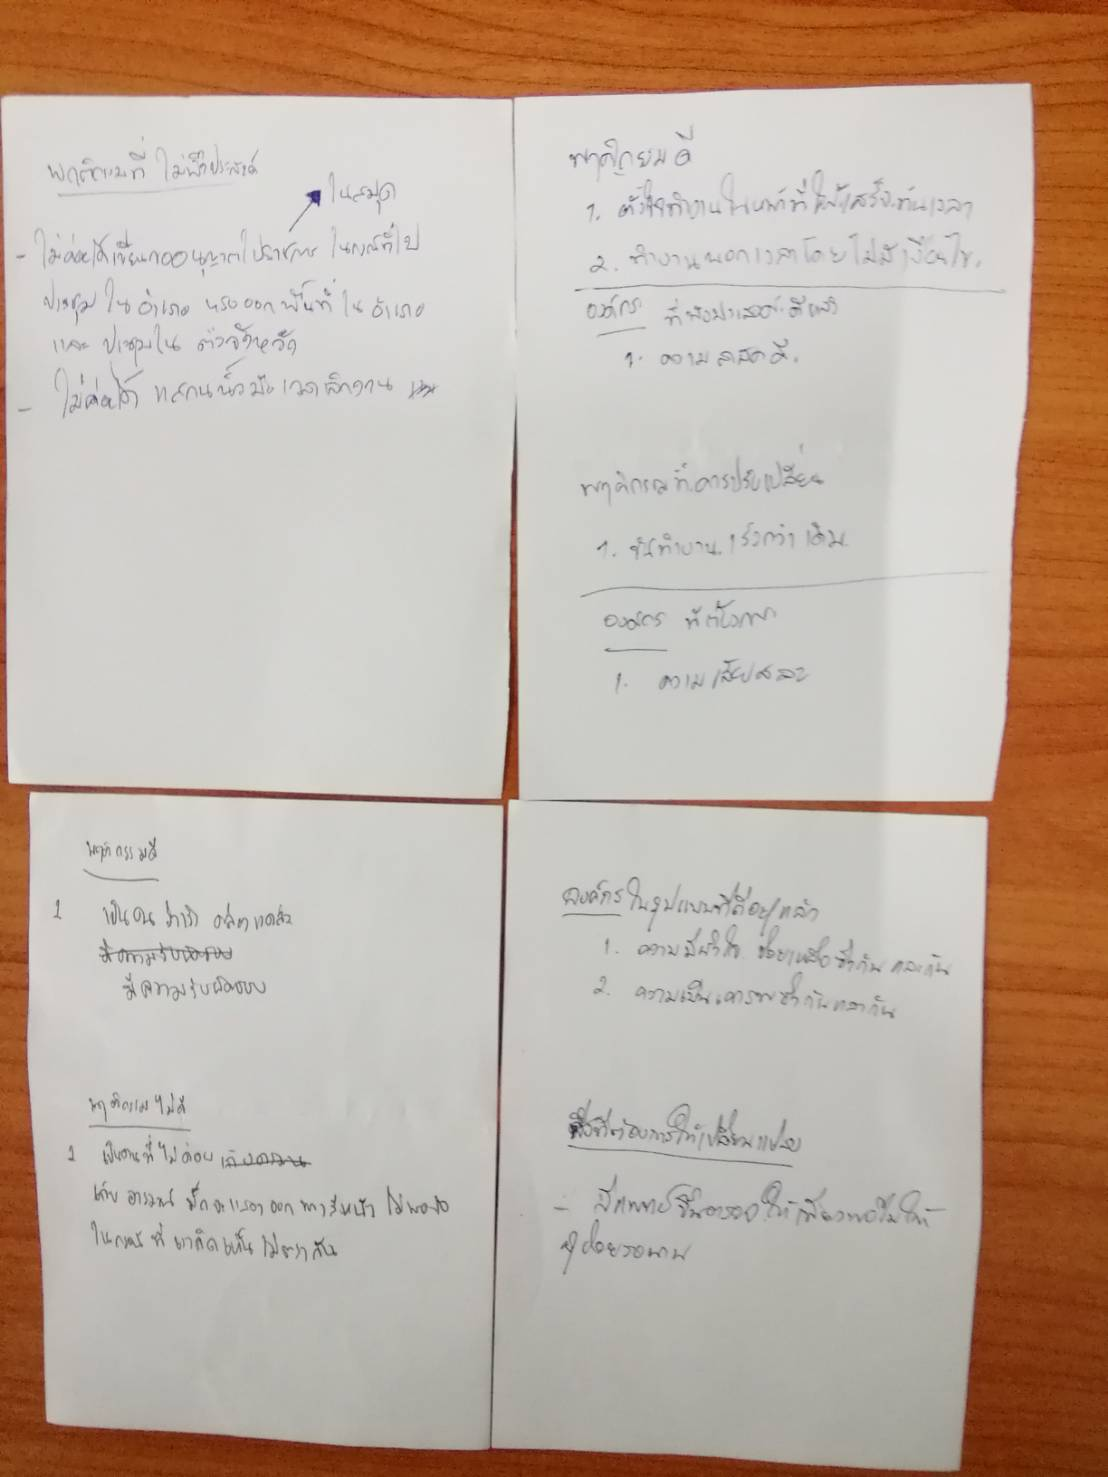 พฤติกรรมที่ ไม่พึงประสงค์
ในสมุด
- ไม่ค่อยได้เขียนขออนุญาตไปราชการ ในกรณีที่ไป
ประชุม ในอำเภอ หรือออกพื้นที่ ในอำเภอ
และ ประชุมใน ตัวจังหวัด
- ไม่ค่อยได้ แสกนนิ้วมือ เวลาเลิกงาน
พฤติกรรมดี
1. ตั้งใจทำงานในหน้าที่ให้เสร็จทันเวลา
2. ทำงานนอกเวลาโดยไม่มีเงื่อนไข.
องค์กร ที่พึงประสงค์ ดีแล้ว
1. ความสามัคคี.
พฤติกรรมที่ควรปรับเปลี่ยน
1. ทำงาน เร็วกว่าเดิม
องค์กร ที่ต้องการ
1. ความเสียสละ
พฤติกรรมดี
1 เป็นคน ร่าเริง
มีความรับผิดชอบ
พฤติกรรมไม่ดี
1 เป็นคนที่ไม่ค่อย
เก็บอารมณ์ มักจะแสดงออกทางสีหน้า ไม่พอใจ
ในกรณี ที่ แนวคิดเห็นไม่ตรงกัน
องค์กร ในรูปแบบที่ดีอยู่แล้ว
1. ความมีน้ำใจ ช่วยเหลือซึ่งกันและกัน
2. ความเป็นเคารพซึ่งกันและกัน
สิ่งที่ต้องการให้เปลี่ยนแปลง
- มีแพทย์ขึ้นตรวจให้เพียงพอไม่ให้
ผู้ป่วยรอนาน